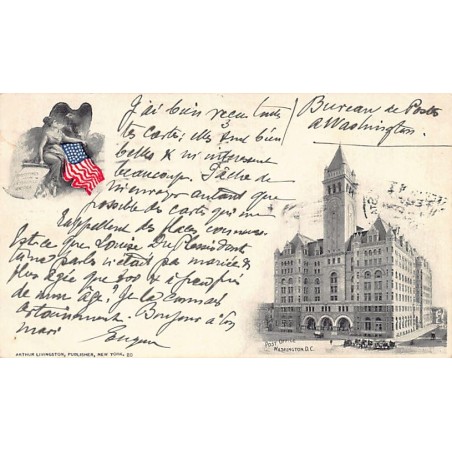 J'ai bien reçu toutes
les cartes, elles sont bien
belles & m'intéressent
beaucoup. Tâche de
m'envoyer autant que
possible des cartes qui me
rappellent des places connues.
Est-ce que Louise
dont
tu me parles n'était pas mariée
plus âgée que
de mon âge? Je la connais
certainement. Bonjour à ton
mari
Eugene
Bureau de Poste
à Washington
POST OFFICE
WASHINGTON, D.C.
ARTHUR LIVINGSTON, PUBLISHER, NEW YORK. 20